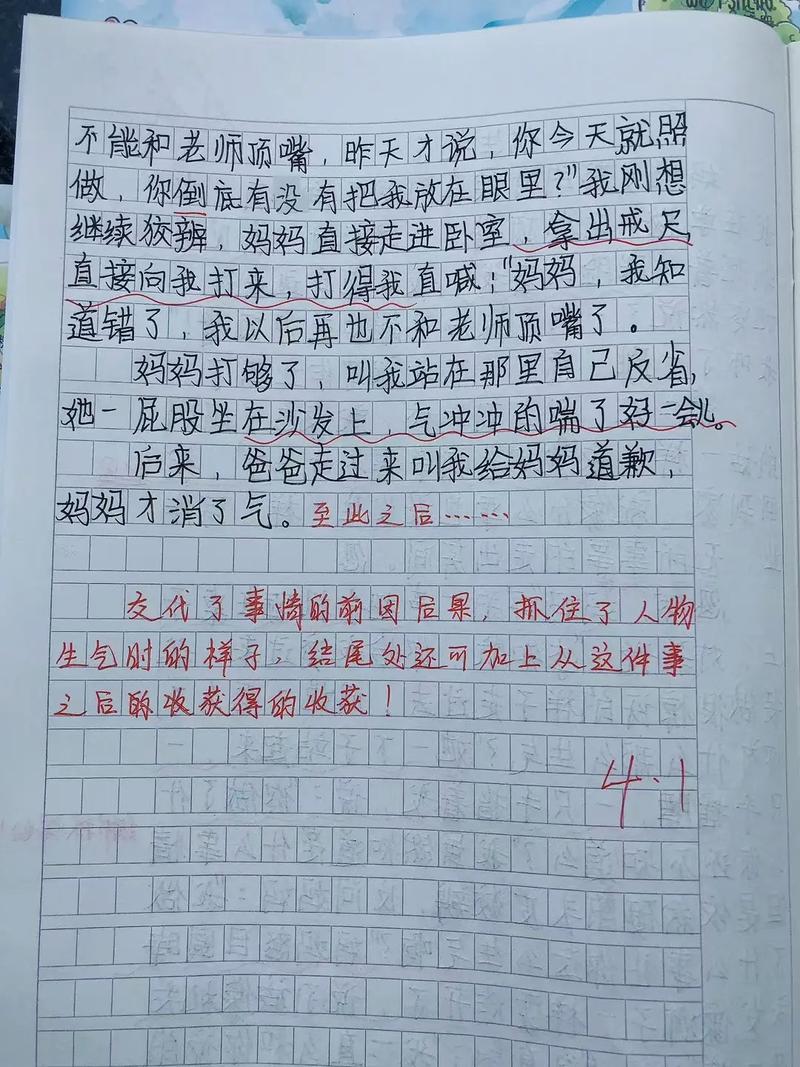 不能和老师顶嘴，昨天才说，你今天就照
做，你倒底有没有把我放在眼里？"我刚想
继续狡辨，妈妈直接走进卧室，拿出戒尺，
直接向我打来，打得我直喊："妈妈，我知
道错了，我以后再也不和老师顶嘴了。
妈妈打够了，叫我站在那里自己反省，
她一屁股坐在沙发上，气冲冲的喘了好一会儿。
后来，爸爸走过来叫我给妈妈道歉，
妈妈才消了气。至此之后……
交代了事情的前因后果，抓住了人物
生气时的样子，结尾处还可加上从这件事
之后的收获得的收获！
4.1